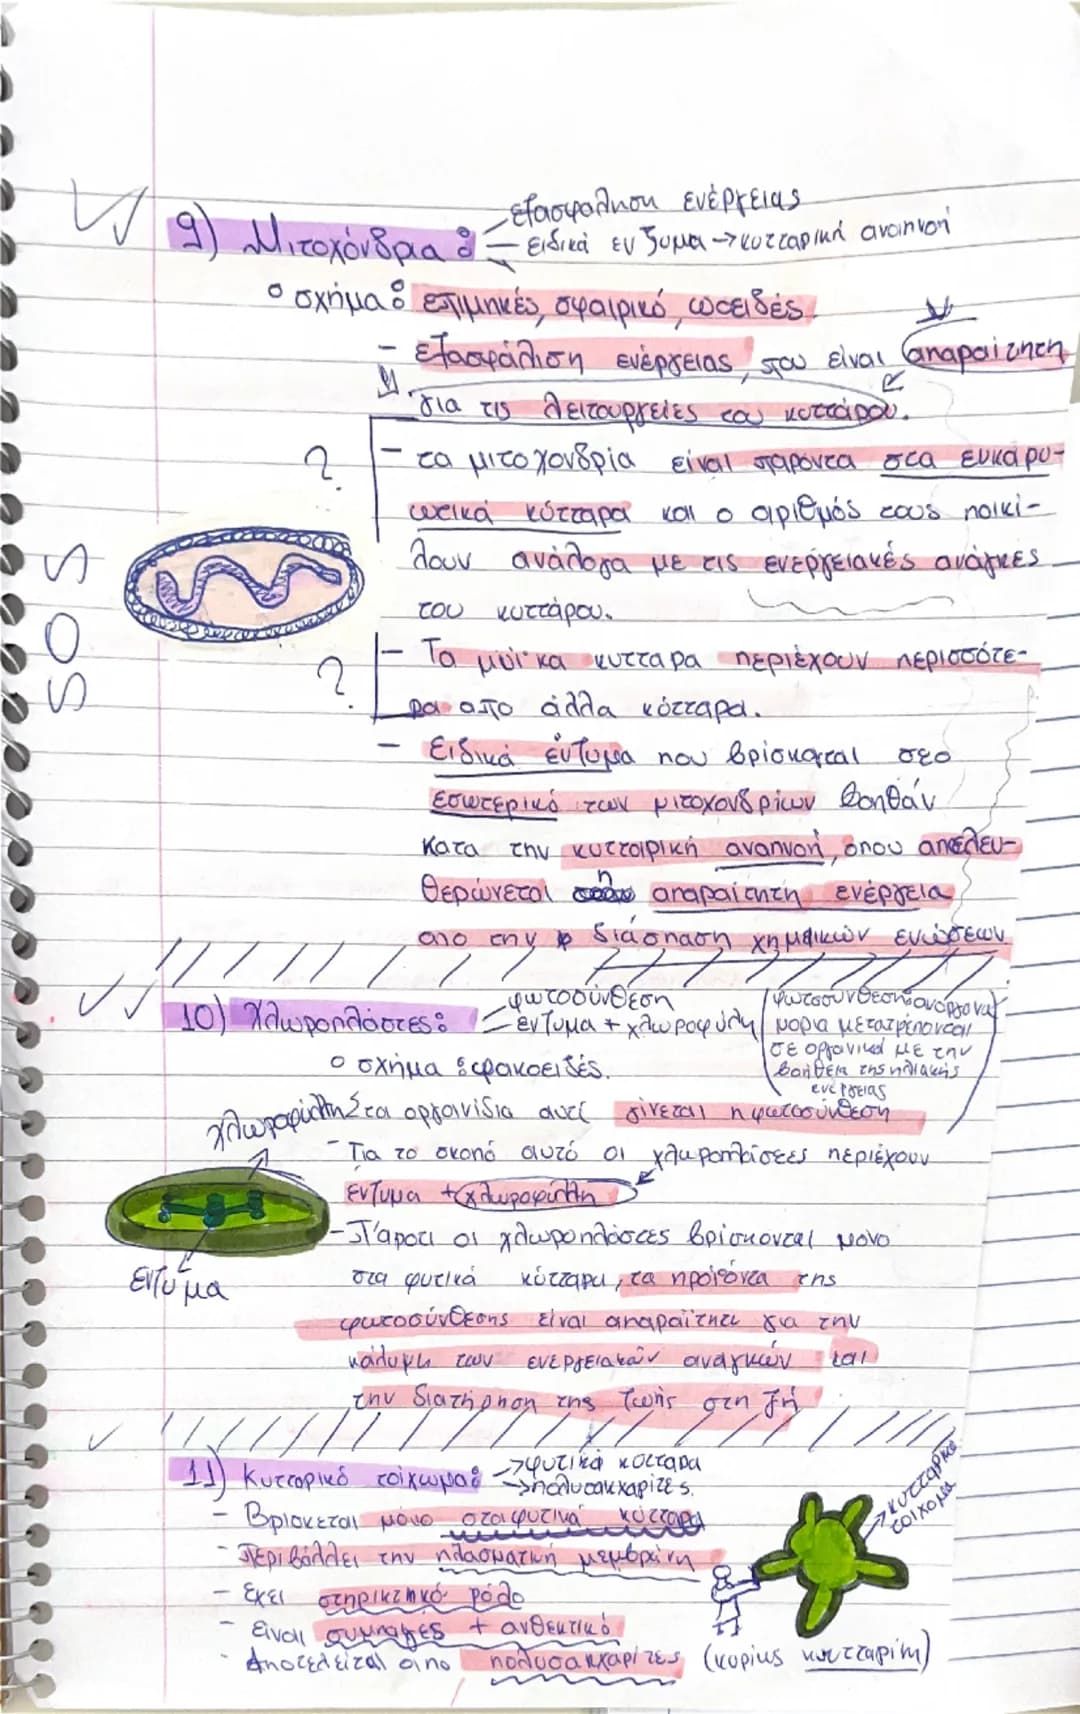 εξασφαληση ενέργειας
9) Μιτοχόνδρια:
ειδικά ενζυμα → κυτταρική αναπνοή
ο σχήμα: επιμηκές, σφαιρικό, ωοειδές.
- εξασφάλιση ενέργειας, που είναι απαραίτητη
για τις λειτουργείες του κυττάρου.
?
- τα μιτοχονδρία είναι παροντα στα ευκαρυ-
ωτικά κύτταρα και ο αριθμός τους ποικί-
λουν ανάλογα με τις ενεργειακές ανάγκες
του κυττάρου.
SOS
?
- Τα μυϊκα κυτταρα περιέχουν περισσότε-
ρα απο άλλα κύτταρα.
- Ειδικά ένζυμα που βρίσκονται στο
εσωτερικό των μιτοχονδρίων βοηθάν
κατα την κυτταρική αναπνοή, όπου απελευ-
θερώνεται η απαραίτητη ενέργεια
απο την διάσπαση χημικών ενώσεων
10) Χλωροπλάστες:
φωτοσύνθεση
ένζυμα + χλωροφύλη
φωτοσύνθεση: ανόργανα
μορια μετατρέπονται
σε οργανικά με την
βοήθεια της ηλιακής
ενέργειας
ο σχήμα: φακοειδές.
χλωροφύλλη
Στα οργανίδια αυτί γίνεται η φωτοσύνθεση
- Για το σκοπό αυτό οι χλωροπλάστες περιέχουν
ένζυμα + χλωροφύλλη
- Πάροτι οι χλωροπλάστες βρίσκονται μονο
ενζυμα
στα φυτικά κύτταρα, τα προϊόντα της
φωτοσύνθεσης είναι απαραίτητι για την
κάλυψη των ενεργειακών αναγκών και
την διατήρηση της ζωής στη γή
11) Κυτταρικό τοίχωμα:
→ φυτικά κύτταρα
→ πολυσακχαρίτες.
κυτταρικό
τοίχομα
- Βρίσκεται μόνο στα φυτικά κύτταρα
- Περιβάλλει την πλασματική μεμβράνη
- Εχει στηρικτηκό ρόλο
- είναι συμπαγές + ανθεκτικό
- Αποτελείται απο πολυσακχαρίτες (κυρίως κυτταρίνη)